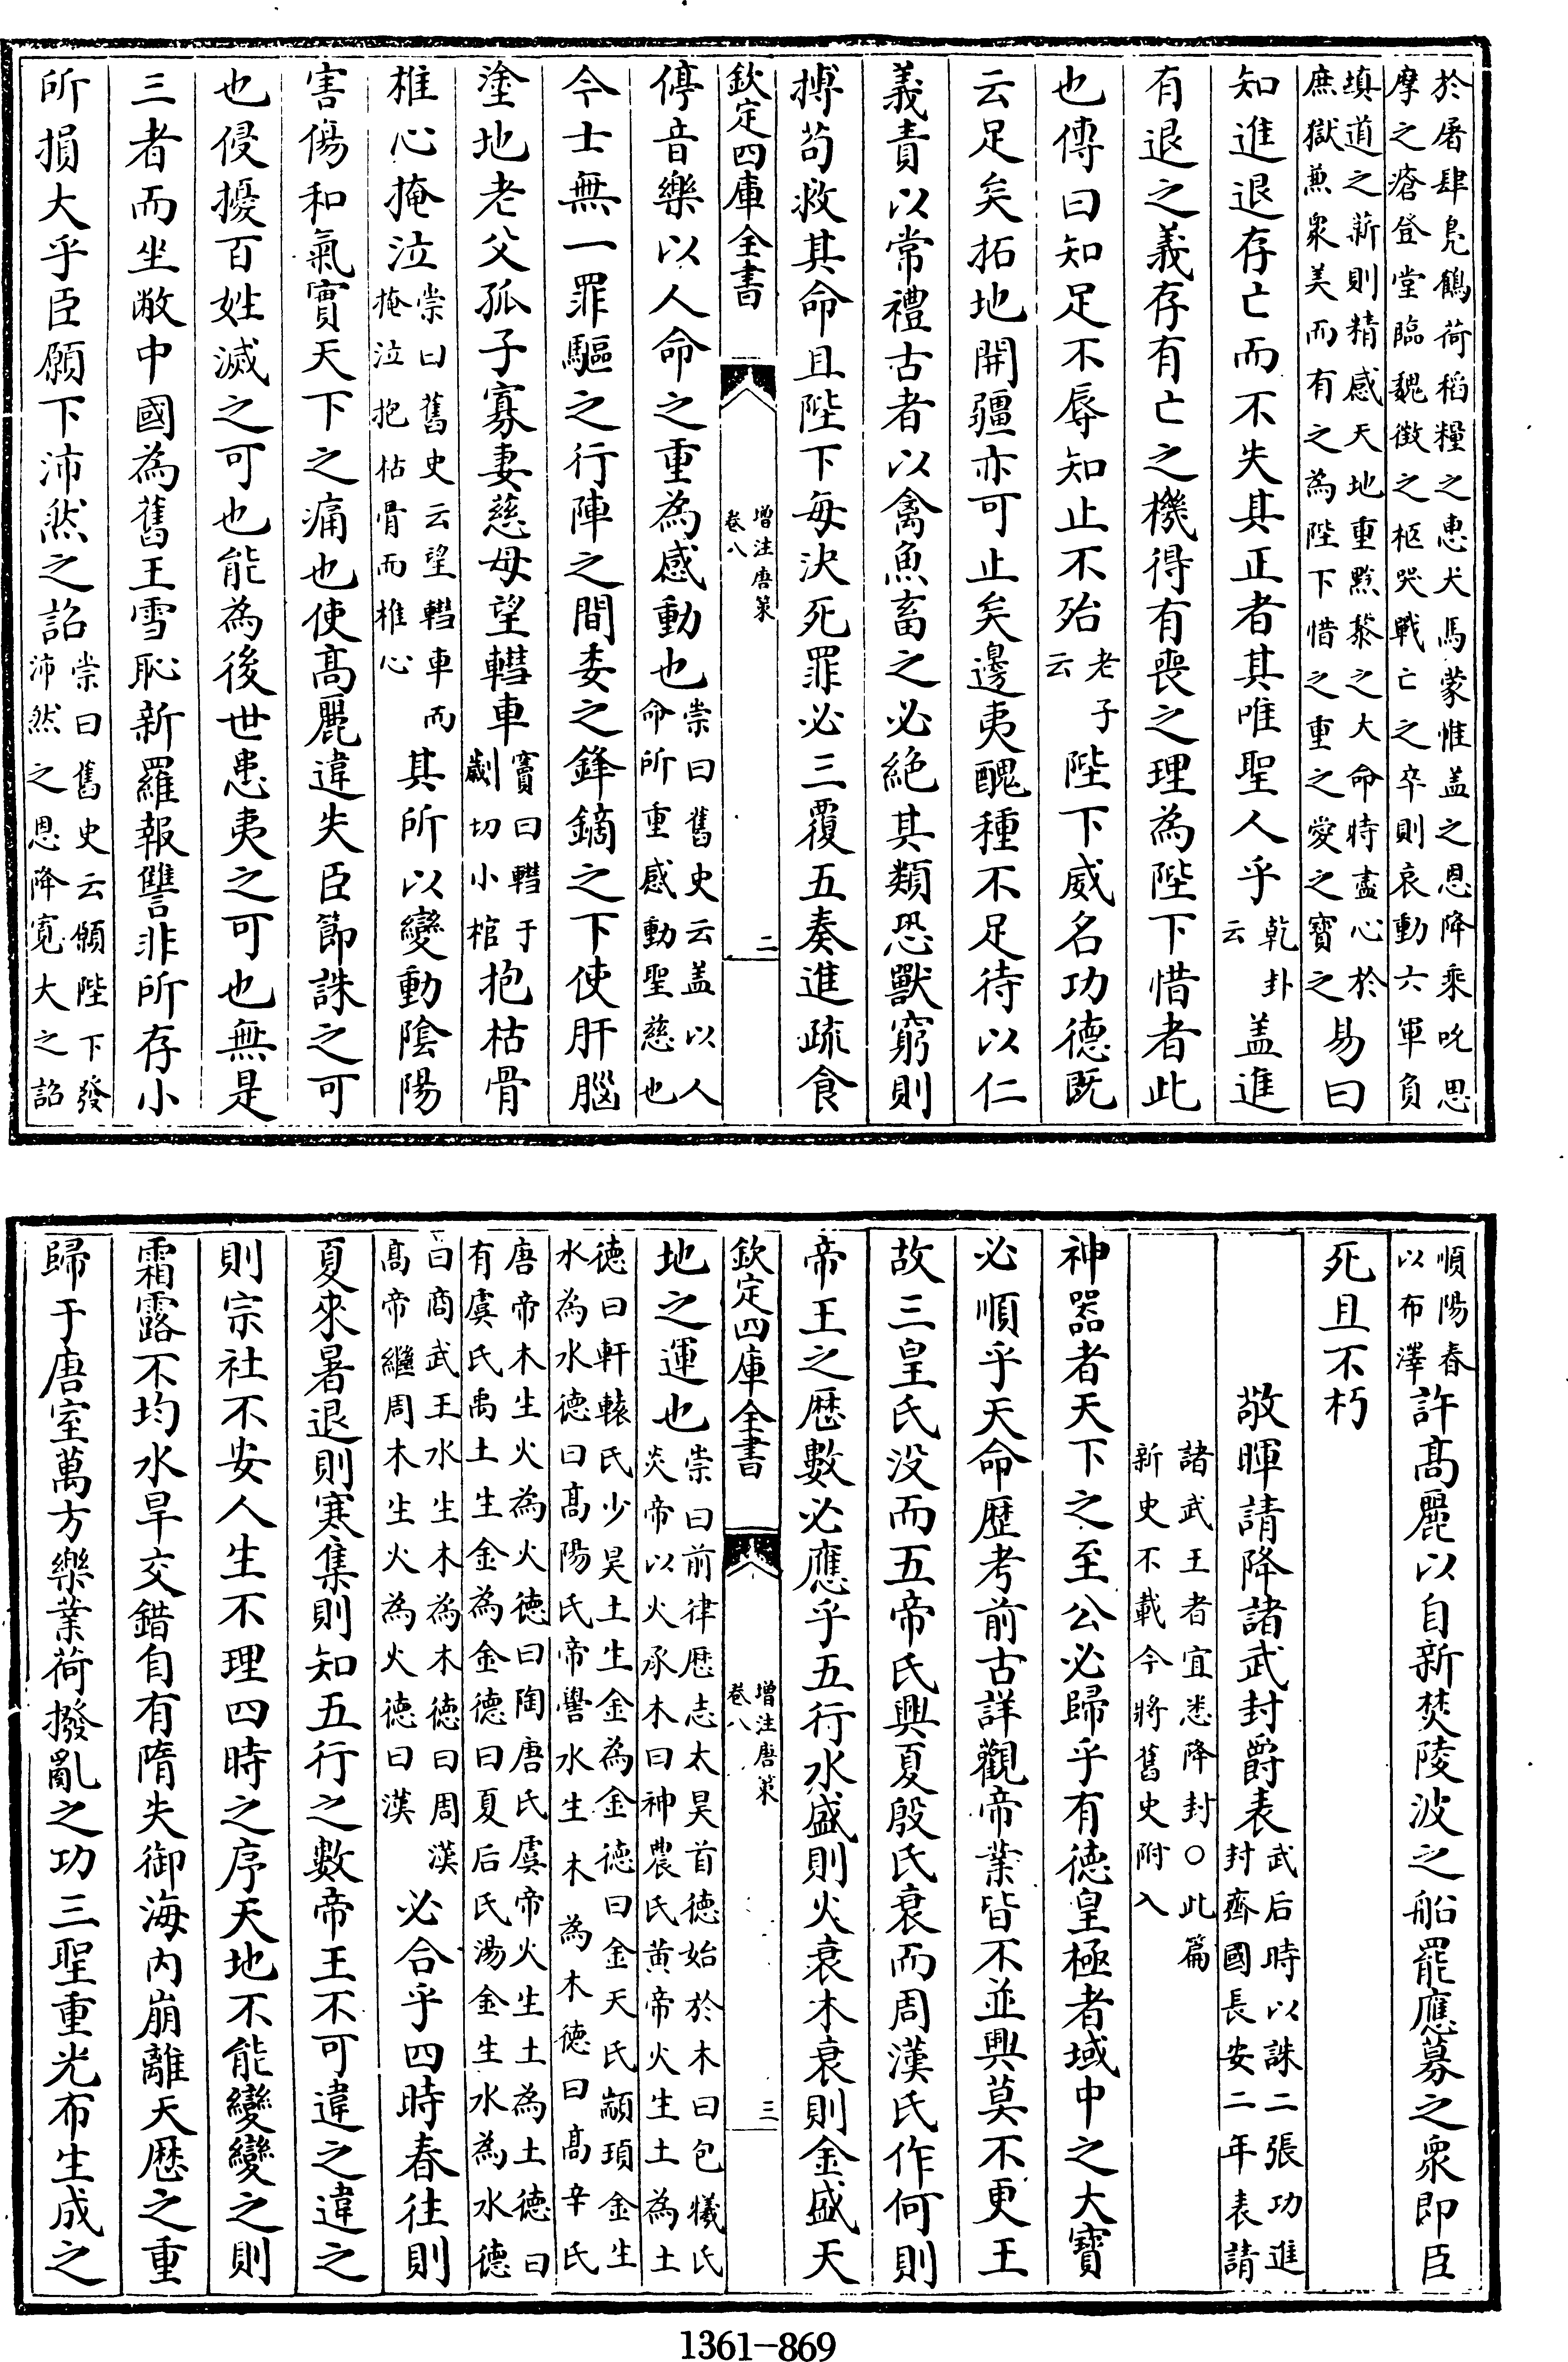 於屠肆鳧鶴荷稻糧之惠犬馬蒙惟盖之恩降乘吮思
摩之瘡登堂臨魏徴之柩哭戰亡之卒則哀動六軍負
填道之薪則精感天地重黙黎之大命時盡心於
庶獄兼衆美而有之為陛下惜之重之愛之寳之易曰
知進退存亡而不失其正者其唯聖人乎乾卦云盖進
有退之義存有亡之機得有喪之理為陛下惜者此
也傳曰知足不辱知止不殆老子云陛下威名功德既
云足矣拓地開疆亦可止矣邊夷醜種不足待以仁
義責以常禮古者以禽魚畜之必絶其類恐獸窮則
搏苟救其命且陛下每決死罪必三覆五奏進疏食
欽定四庫全書 增注唐策 卷八 二
停音樂以人命之重為感動也崇曰舊史云盖以人命所重感動聖慈也
今士無一罪驅之行陣之間委之鋒鏑之下使肝腦
塗地老父孤子寡妻慈母望轊車竇曰轊于劌切小棺抱枯骨
椎心掩泣崇曰舊史云望轊車而掩泣抱枯骨而椎心其所以變動陰陽
害傷和氣實天下之痛也使髙麗違失臣節誅之可
也侵擾百姓滅之可也能為後世患夷之可也無是
三者而坐敝中國為舊王雪恥新羅報讐非所存小
所損大乎臣願下沛然之詔崇曰舊史云願陛下發沛然之恩降寛大之詔
順陽春以布澤許髙麗以自新焚陵波之船罷應募之衆即臣
死且不朽
敬暉請降諸武封爵表武后時以誅二張功進封齊國長安二年表請
諸武王者宜悉降封○此篇
新史不載今將舊史附入
神器者天下之至公必歸乎有徳皇極者域中之大寳
必順乎天命歴考前古詳觀帝業皆不並興莫不更王
故三皇氏没而五帝氏興夏殷氏衰而周漢氏作何則
帝王之歴數必應乎五行水盛則火衰木衰則金盛天
欽定四庫全書 增注唐策 卷八 三
地之運也崇曰前律歴志太昊首德始於木曰包犧氏炎帝以火承木曰神農氏黄帝火生土為土
徳曰軒轅氏少昊土生金為金德曰金天氏顓頊金生
水為水德曰髙陽氏帝嚳水生木為木德曰髙辛氏
唐帝木生火為火德曰陶唐氏虞帝火生土為土德曰
有虞氏禹土生金為金德曰夏后氏湯金生水為水德
曰商武王水生木為木德曰周漢髙帝繼周木生火為火德曰漢必合乎四時春往則
夏來暑退則寒集則知五行之數帝王不可違之違之
則宗社不安人生不理四時之序天地不能變變之則
霜露不均水旱交錯自有隋失御海内崩離天歴之重
歸于唐室萬方樂業荷撥亂之功三聖重光布生成之
1361-869